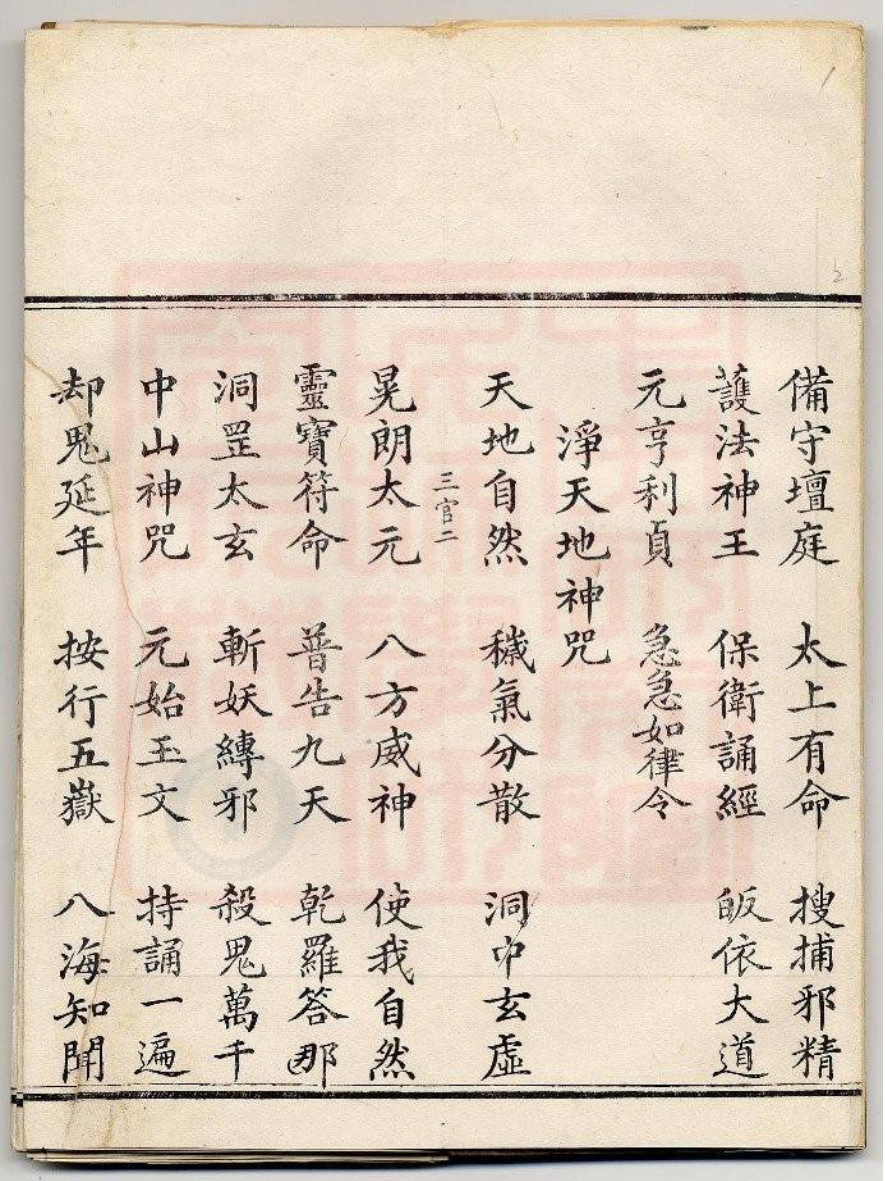 備守壇庭 太上有命 搜捕邪精
護法神王 保衛誦經 皈依大道
元亨利貞 急急如律令
淨天地神咒
天地自然 穢氣分散 洞中玄虛
三官二
晃朗太元 八方威神 使我自然
靈寶符命 普告九天 乾羅答那
洞罡太玄 斬妖縛邪 殺鬼萬千
中山神咒 元始玉文 持誦一遍
却鬼延年 按行五嶽 八海知聞